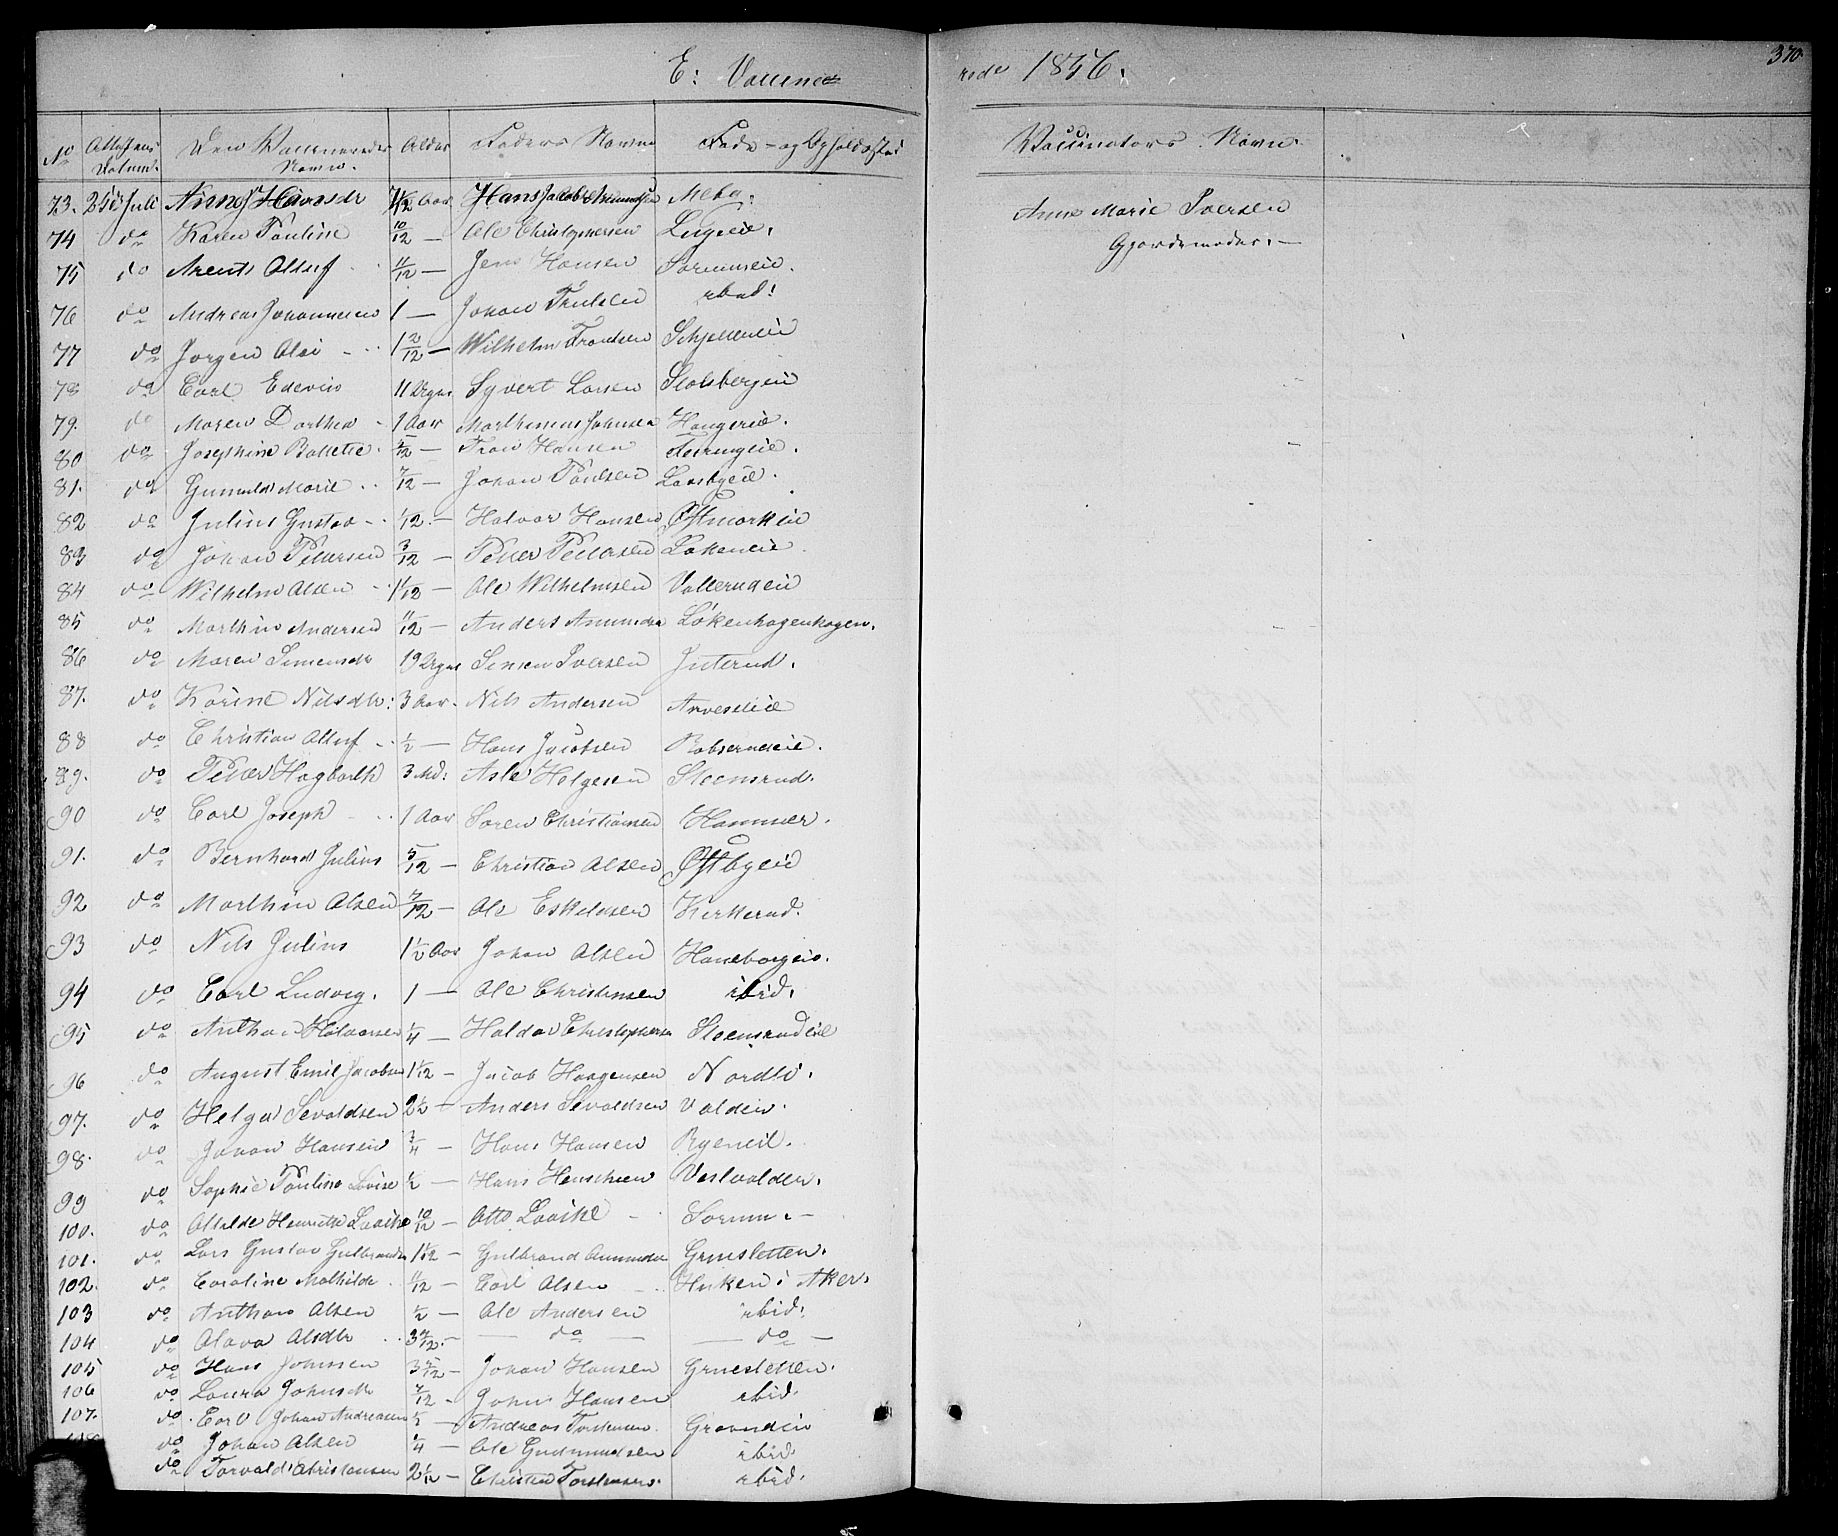 E: Vaccine
rede 1856.
370
No Attestens Datum. Den Vaccineredes Navn. Alder Faders Navn Føde- og Opholdssted
Vaccinateurs Navn.
73. Juli Anne Hansdr Aar Hans Jacob Amundsen
Anne Marie Iversen
74 do Karen Pauline 10/12 — Ole Christophersen
Gjordemoder. —
75 do Arents Oluf 11/12 — Jens Hansen Sørumeie.
76 do Andreas Johannesen 1 — Johan Trulsen ibid:
77 do Jørgen Olai 1 2/12 — Wilhelm Frantsen
78 do Carl Edevin 11 Uger Syvert Larsen Stolsbergeie
79. do Maren Dorthea 1 Aar Marthinius Johnsen Haugereie.
80 do Josephine Bollette 5/12 — Hansen
81. do Gunnild Marie 7/12 — Johan Poulsen Laasbyeie.
82 do Julius Gustav 1/12 — Halvor Hansen Østmarkeie
83 do Johan Pettersen 3/12 — Petter Pettersen Løkeneie
84 do Wilhelm Olsen 1 1/12 — Ole Wilhelmsen Vallerudeie
85 do Marthin Andersen 11/12 — Anders Amundsen Løkenhagenhagen.
86 do Maren Simensdr 19 Uger Simen Iversen Juterud.
87. do Karine Nilsdr: 3 Aar. Nils Andersen Arveseteie
88 do Christian Oluf 1/2 — Hans Jacobsen Robsrudeie.
89. do Petter Hagbarth 3 Md: Asle Helgesen Steensrud.
90 do Carl Joseph 1 Aar Søren Christiansen Hammer.
91. do Bernhard Julius 5/12 — Christian Olsen Østbyeie
92 do Marthin Olsen 7/12 — Ole Eskildsen Kirkerud.
93 do Nils Julius 1 1/2 Aar Johan Olsen Haneborgeie.
94 do Carl Ludvig. 1 — Ole Christensen ibid.
95 do Anthon Halvorsen 1/4 — Haldor Christophersen Steensrudeie
96 do August Emil Jacobsen 1 1/12 — Jacob Haagensen Nordli.
97. do Helga Sevaldsen 2 1/2 — Anders Sevaldsen Valdeie.
98. do Johan Hansen 3/4 — Hans Hansen Ryeneie.
99 do Sophie Pauline Lovise 1/2 — Hans Henschien Vestvolden.
100. do Othilde Henriette Laache 10/12 — Otto Laache — Sørum. —
101. do Lars Gustav Gulbrandsen 1 1/12 — Gulbrand Amundsen Gruesletten.
102. do Caroline Mathilde 11/12 — Carl Olsen Huken i Aker.
103 do Anthon Olsen 1/2 — Ole Andersen ibid.
104 do Olava Olsdr 3 — do — — do —
105 do Hans Johnsen 3 — Johan Hansen Gruesletten.
106 do Laura Johnsdr 7/12 — John Hansen ibid.
107. do Carl Johan Andreasen 1/2 — Andreas Torstensen. Gravndeie
do Johan Olsen 1/4 — Ole Gudmundsen ibid.
do Torvald Christensen 2 1/12 — Christen Torstensen. ibid.